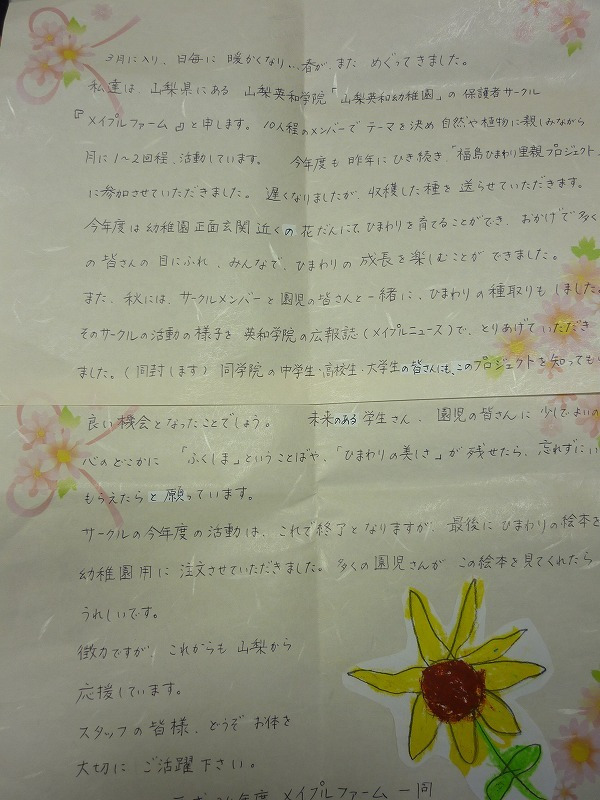 3月に入り、日毎に 暖かくなり… 春が、また めぐってきました。
私達は、山梨県にある 山梨英和学院「山梨英和幼稚園」の 保護者サークル
『メイプルファーム』と申します。10人程のメンバーで テーマを決め 自然や植物に親しみながら
月に1〜2回程、活動しています。 今年度も 昨年にひき続き「福島ひまわり里親プロジェクト
に参加させていただきました。遅くなりましたが、収穫した種を 送らせていただきます。
今年度は幼稚園正面玄関近くの花だんにて、ひまわりを育てることができ、おかげで多く
の皆さんの目にふれ、みんなで、ひまわりの 成長を楽しむことが できました。
また、秋には、サークルメンバーと園児の皆さんと一緒に、ひまわりの種取りもしました
そのサークルの活動の様子を 英和学院の広報誌(メイプルニュース)で、とりあげていただき
ました。(同封します) 同学院の中学生・高校生・大学生の皆さんにも、このプロジェクトを知っても
良い機会となったことでしょう。 未来のある学生さん、園児の皆さんに少しでもいいの
心のどこかに 「ふくしま」ということばや、「ひまわりの美しさ」が残せたら、忘れずにい
もらえたらと願っています。
サークルの今年度の活動は、これで終了となりますが、最後にひまわりの絵本を
幼稚園用に 注文させていただきました。多くの園児さんが この絵本を見てくれたら
うれしいです。
微力ですが、これからも 山梨から
応援しています。
スタッフの皆様、どうぞ お体を
大切に ご活躍下さい。
年度 メイプルファーム 一同